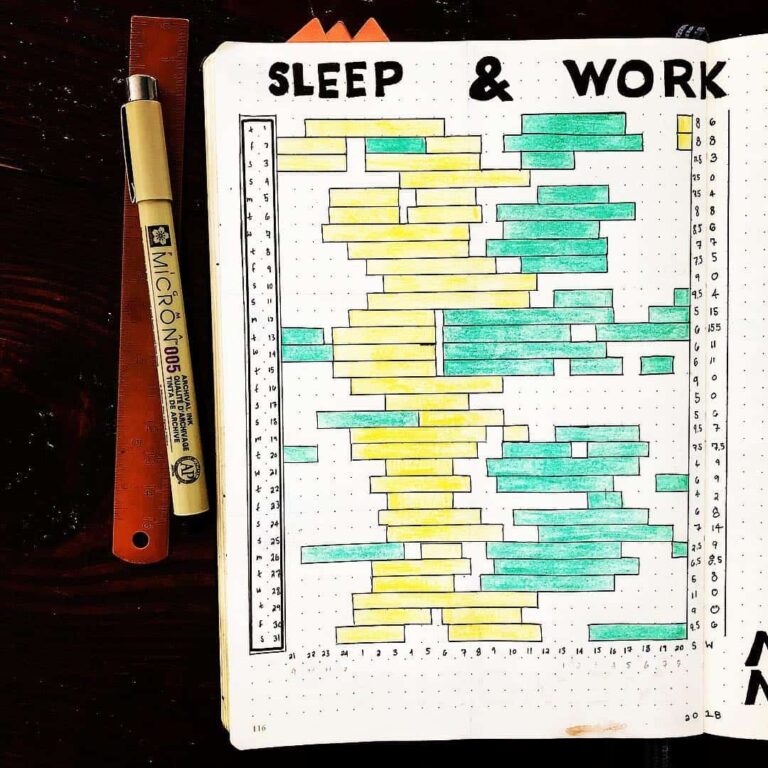 SLEEP & WORK
t 1 8 6
f 2 8 8
s 3 7.5 3
s 4 7.5 0
m 5 5 4
t 6 8 8
w 7 8.5 6
t 8 7 7
f 9 7.5 5
s 10 9 0
s 11 9.5 4
m 12 5 15
t 13 6 15.5
w 14 6 11
t 15 5 11
f 16 9 0
s 17 5 0
s 18 5 6
m 19 9.5 7
t 20 7.5 7.5
w 21 4 9
t 22 6 9
f 23 4 2
s 24 6 8
s 25 7 14
m 26 2.5 9
t 27 6.5 8.5
w 28 5 8
t 29 11 0
f 30 9 0
s 31 9.5 6
21 22 23 24 1 2 3 4 5 6 7 8 9 10 11 12 13 14 15 16 17 18 19 20 S W
2018
116
MICRON 005
ARCHIVAL INK
QUALITÉ D'ARCHIVAGE
TINTA DE ARCHIVE
AP